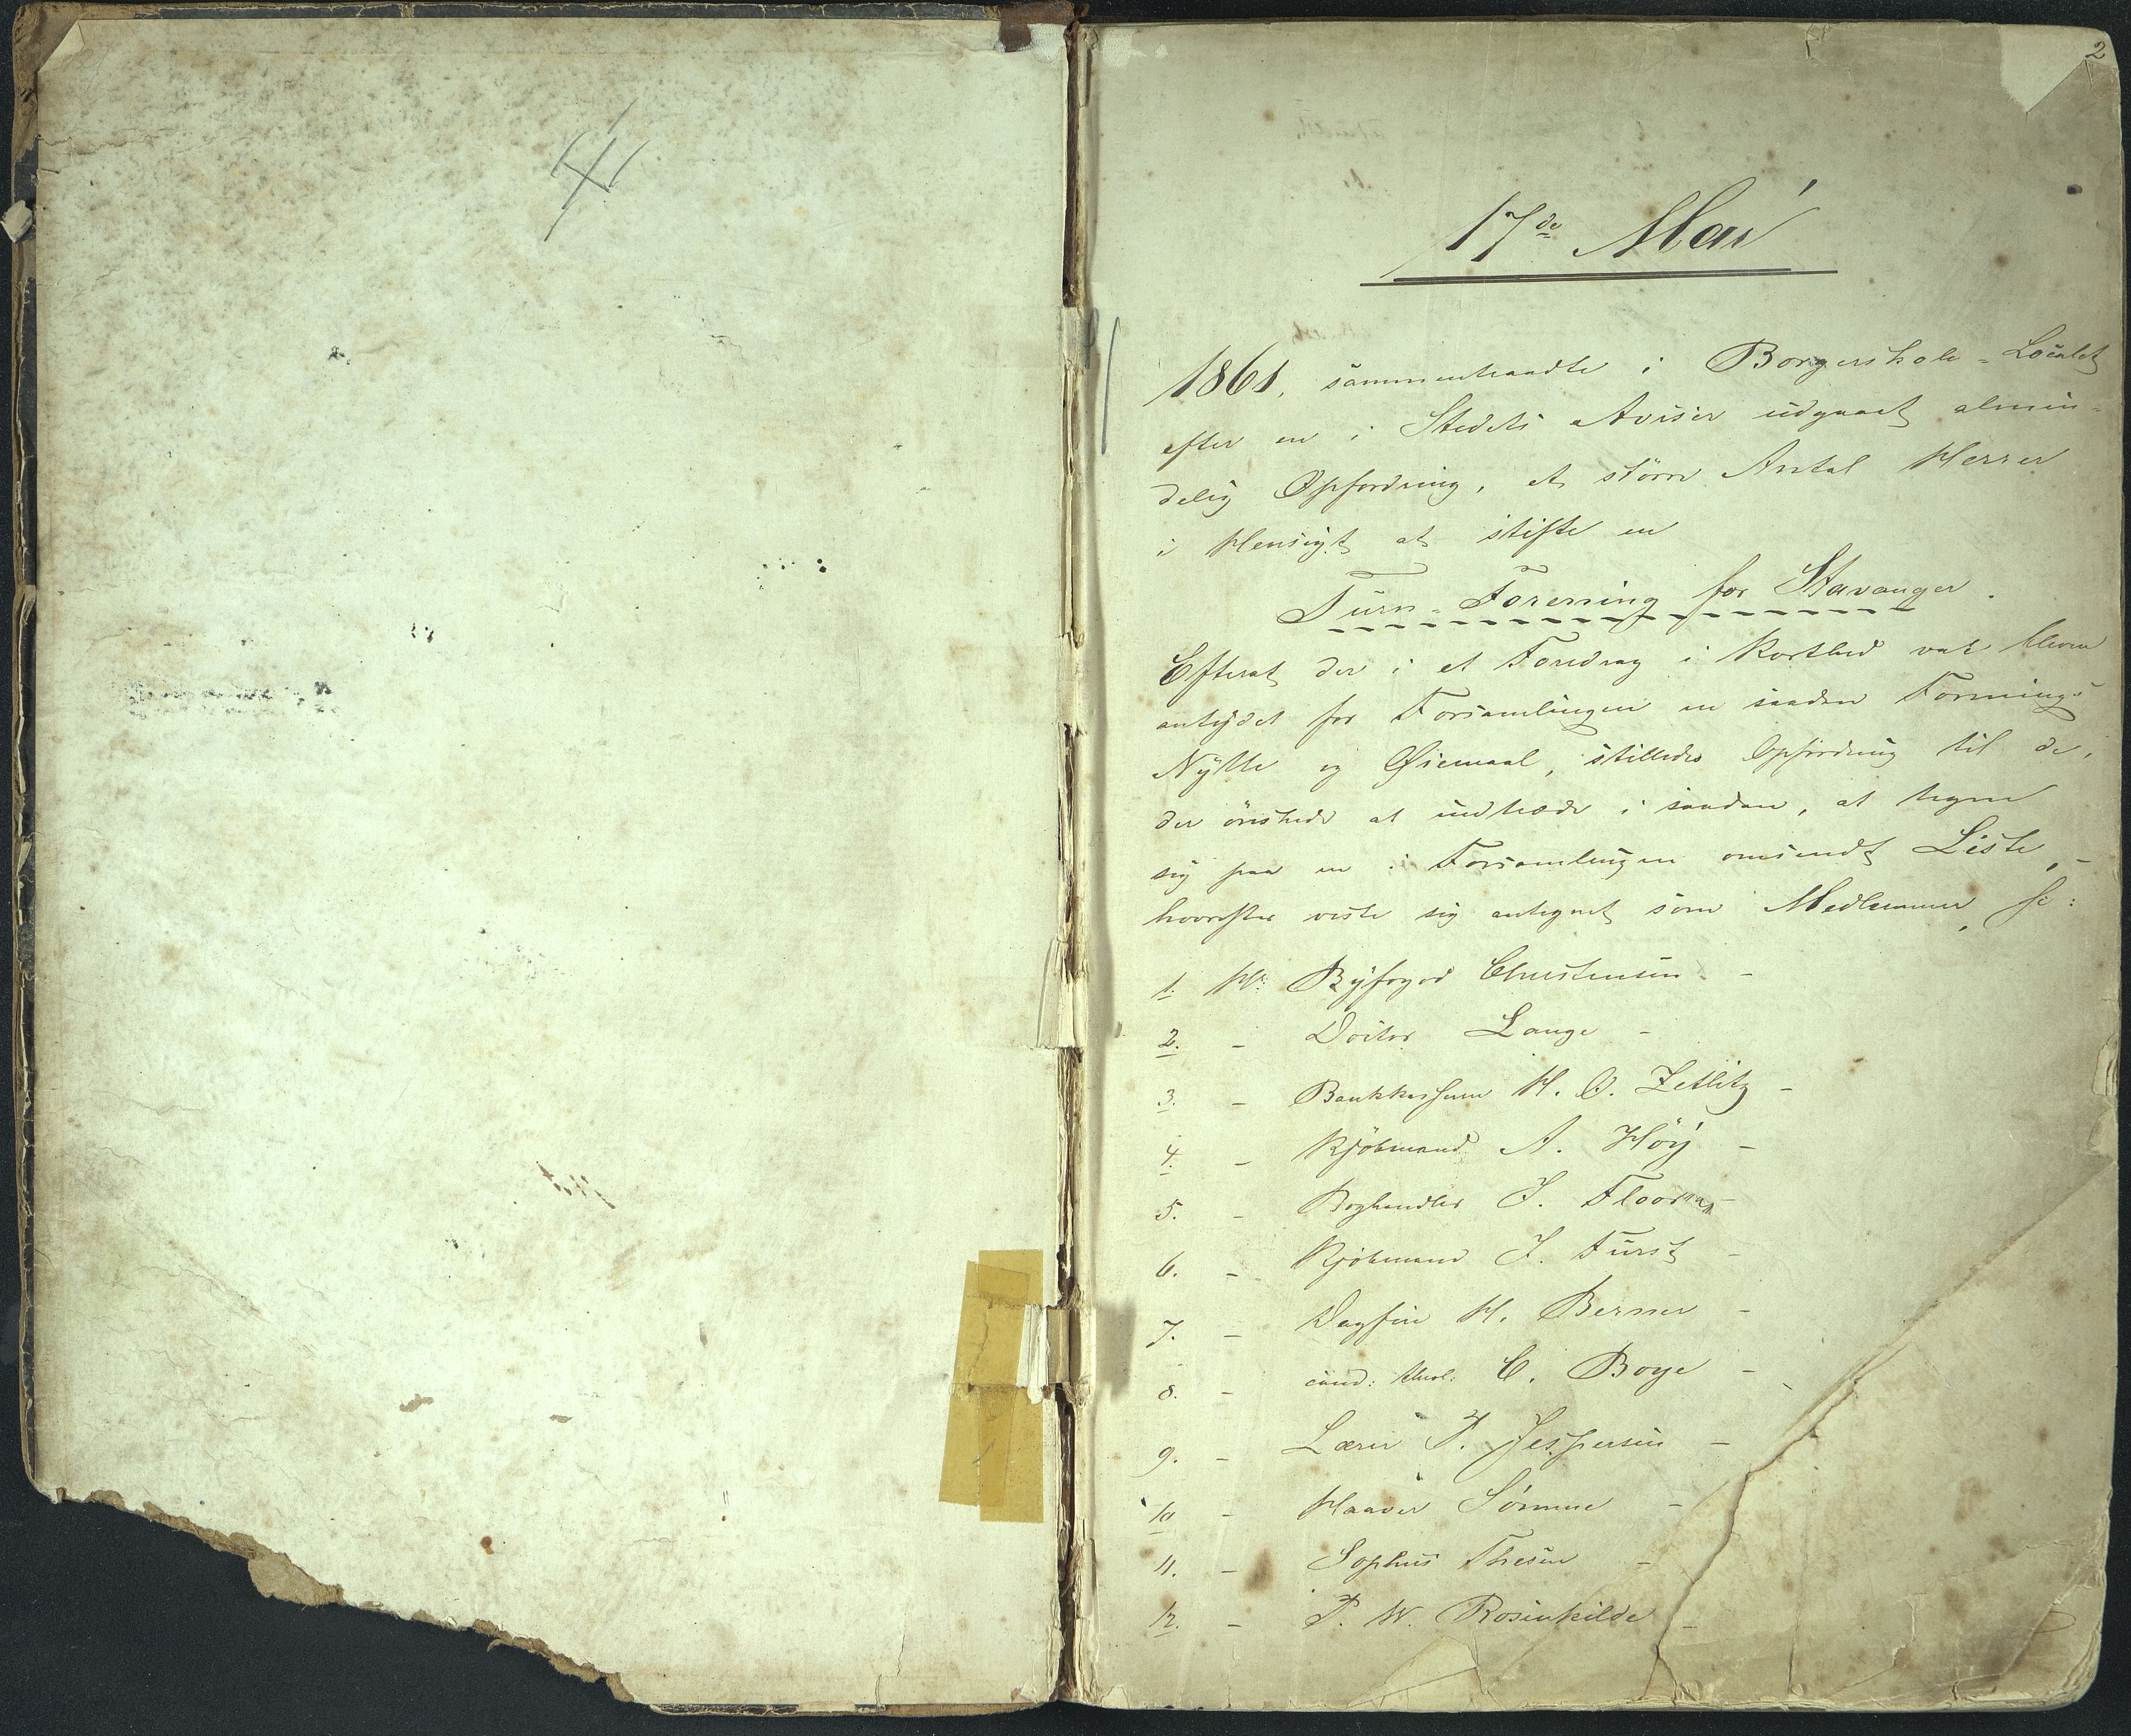 2
17de Mai
1861, sammentraadte i Borgerskole-Localet
efter en i Stedets Aviser udgaaet almin-
delig Opfordring, et større Antal Herrer
i Hensigt at stifte en
Turn-Forening for Stavanger.
Efterat der i et Foredrag i Korthed var bleven
antydet for Forsamlingen en saadan Forenings
Nytte og Øiemaal, stilledes Opfordring til de,
der ønskede at indtræde i saadan, at tegne
sig paa en i Forsamlingen omsendt Liste,-
hvorefter viste sig antegnet som Medlemmer,
1. Hr. Byfoged Christensen -
2. - Doctor Lange -
3. - Bankkasserer H. O. Zetlitz -
4. - Kjøbmand A. Høy -
5. - Boghandler I. Floor -
6. - Kjøbmand I. Fürst -
7. - Dagfin H. Berner -
8. - cand: theol: C. Boye -
9. - Lærer P. Jespersen -
10 - Haaver Sømme -
11. - Sophus Thesen -
12. - P. W. Rosenkilde -